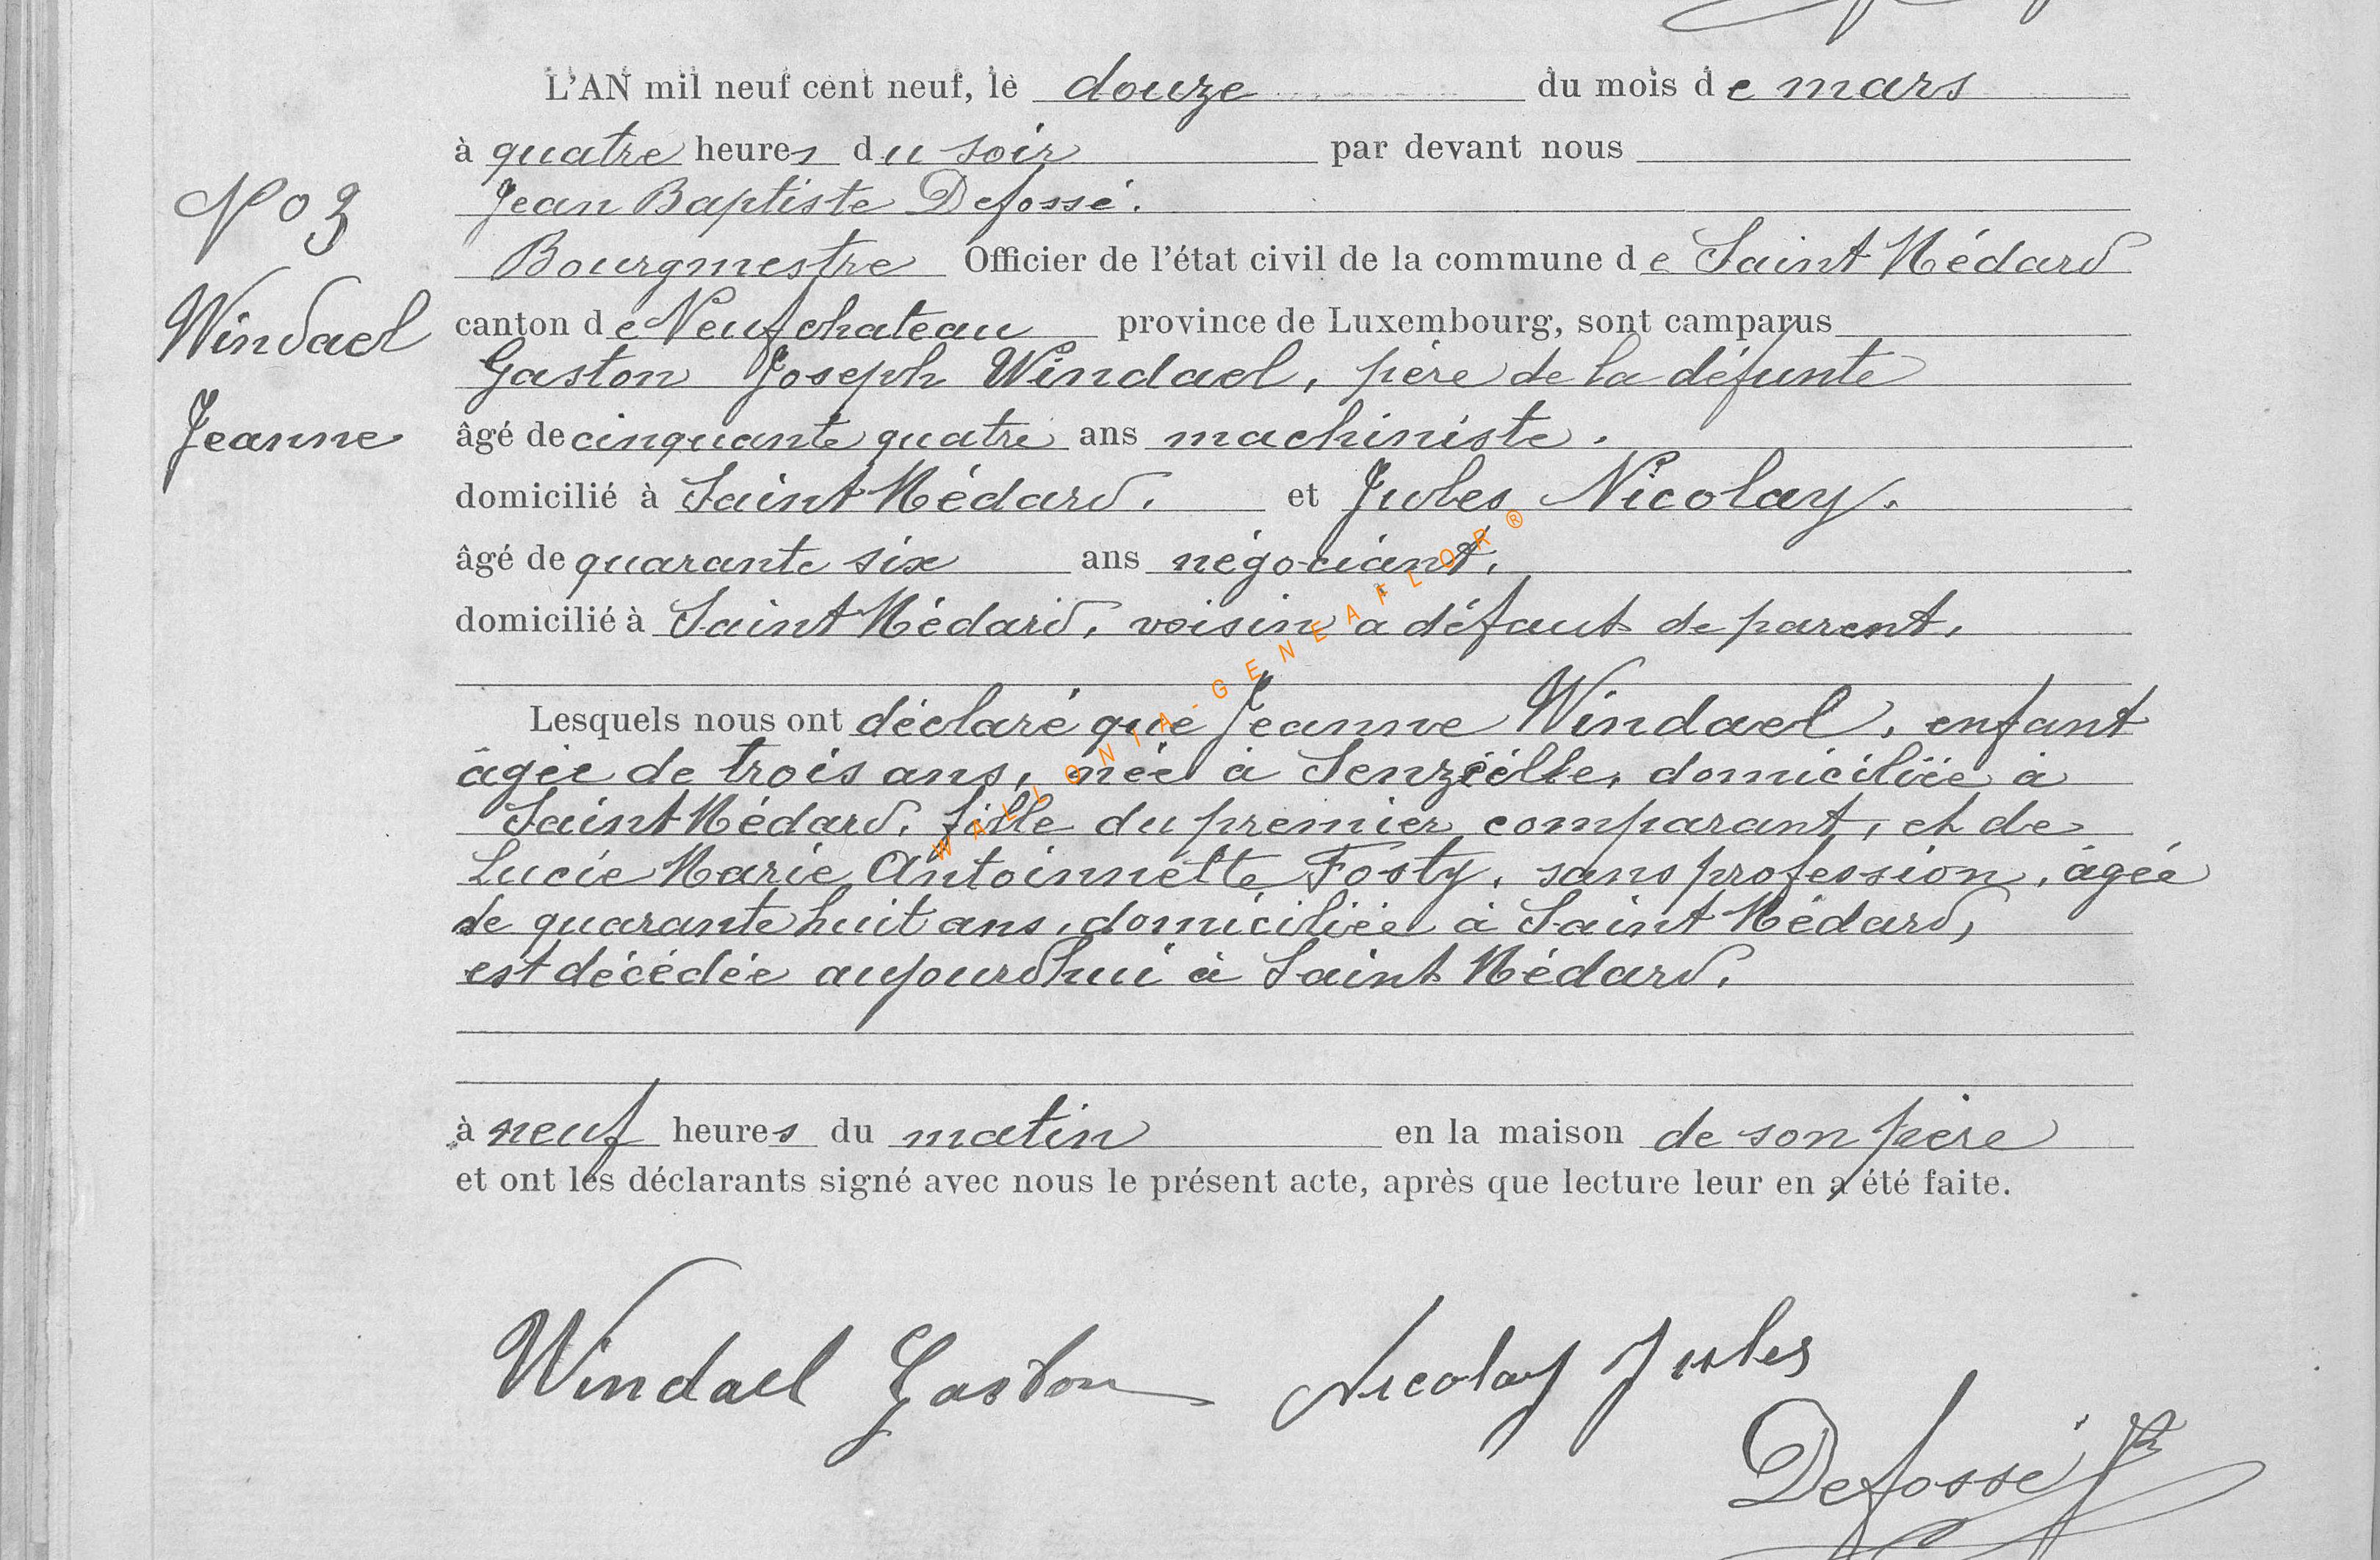 L'AN mil neuf cent neuf, le douze du mois de mars
à quatre heures du soir par devant nous
Jean Baptiste Defossé.
N° 3
Bourgmestre Officier de l'état civil de la commune de Saint Médard
Windael
canton de Neufchateau province de Luxembourg, sont camparus
Gaston Joseph Windael, père de la défunte
Jeanne
âgé de cinquante quatre ans machiniste.
domicilié à Saint Médard. et Jules Nicolay.
âgé de quarante six ans négociant.
domicilié à Saint Médard, voisin a défaut de parent.
Lesquels nous ont déclaré que Jeanne Windael, enfant
âgée de trois ans, née à Senzeille, domiciliée à
Saint Médard, fille du premier comparant, et de
Lucie Marie Antoinnette Fosty, sans profession, âgée
de quarante huit ans, domiciliée à Saint Médard,
est décédée aujourdhui à Saint Médard.
à neuf heures du matin en la maison de son père
et ont les déclarants signé avec nous le présent acte, après que lecture leur en a été faite.
Windael Gaston Nicolay Jules
Defossé
WALLONIA-GENEAFLOR®